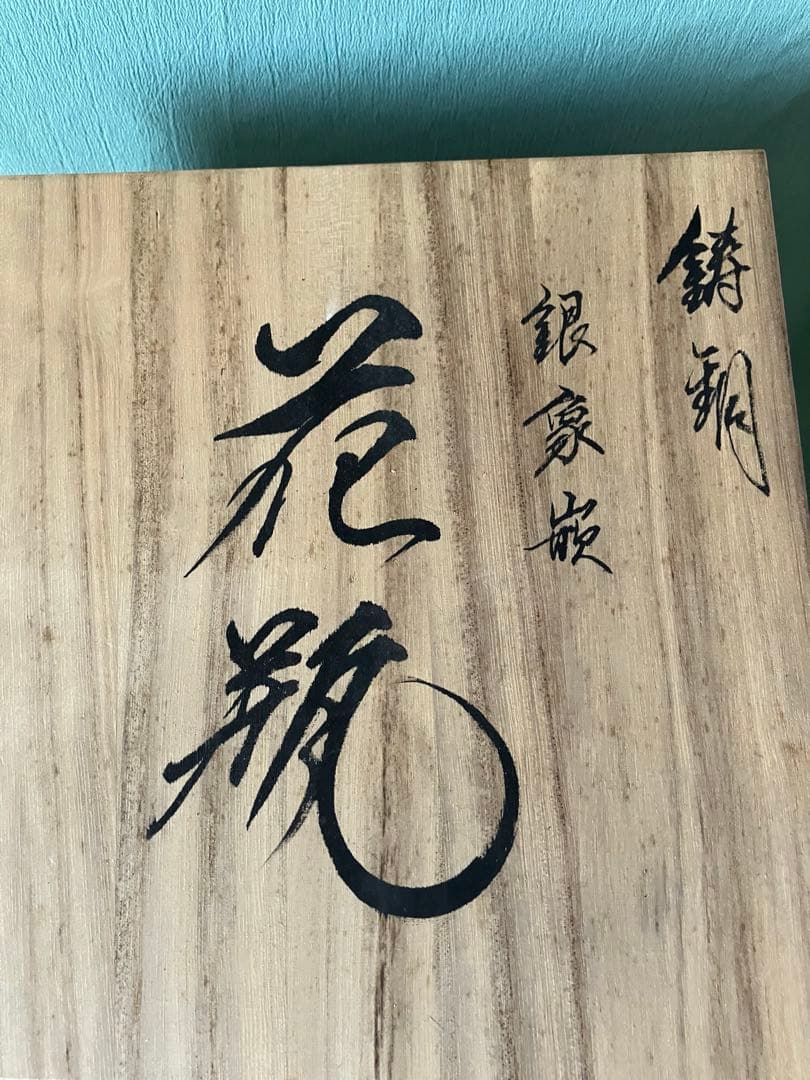 鋳銅
銀象嵌
花瓶